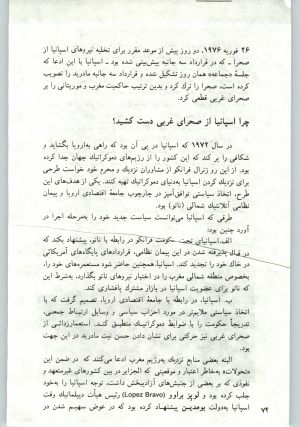 ۲۶ فوریه ۱۹۷۶، دو روز پیش از موعد مقرر برای تخلیه نیروهای اسپانیا از
صحرا ـ که در قرارداد سه جانبه پیش‌بینی شده بود ـ اسپانیا با این ادعا که
جلسهٔ «جماعه» همان روز تشکیل شده و قرارداد سه جانبه مادرید را تصویب
کرده است، صحرا را ترک کرد و بدین ترتیب حاکمیت مغرب و موریتانی را بر
صحرای غربی قطعی کرد.
چرا اسپانیا از صحرای غربی دست کشید؟
در سال ۱۹۷۲ اسپانیا در پی آن بود که راهی به‌اروپا بگشاید و
شکافی را پر کند که این کشور را از رژیم‌های دموکراتیک جهان جدا کرده
بود. از این رو ژنرال فرانکو از مشاوران نزدیک و محرم خود خواست طرحی
برای نزدیک کردن اسپانیا به‌دنیای دموکراتیک تهیه کنند. یکی از هدف‌های این
طرح، اتخاذ سیاستی توافق‌آمیز در چارچوب جامعهٔ اقتصادی اروپا و پیمان
نظامی آتلانتیک شمالی (ناتو) بود.
طرقی که اسپانیا می‌توانست سیاست جدید خود را به‌مرحله اجرا در
آورد چنین بود:
الف. اسپانیای تحت حکومت فرانکو در رابطه با ناتو، پیشنهاد بکند که
در قبال پذیرفته شدن در این پیمان نظامی، قراردادهای پایگاه‌های آمریکائی
در خاک خود را تجدید کند. اسپانیا همچنین حاضر شود مستعمره‌های خود را،
بخصوص منطقه شمالی مغرب را در اختیار نیروهای ناتو بگذارد، به‌شرط این
که ناتو برای عضویت اسپانیا در بازار مشترک پافشاری کند.
ب. اسپانیا، در رابطه با جامعهٔ اقتصادی اروپا، تصمیم گرفت که با
اتخاذ سیاستی ملایم‌تر در مورد احزاب سیاسی و وسایل ارتباط جمعی،
تدریجاً حکومت را با ضوابط دموکراتیک منطبق کند. استعمارزدائی از
صحرای غربی نیز حرکتی برای نشان دادن حسن نیت مادرید در این جهت
بود.
البته بعضی منابع نزدیک به‌رژیم مغرب ادعا می‌کنند که در ضمن این
تحولات، به‌خاطر اعتبار و موقعیتی که الجزایر در بین کشورهای غیرمتعهد و
نفوذی که بر بعضی از جنبش‌های آزادیبخش داشت، توجه اسپانیا را به‌خود
جلب کرده بود و لوپز براوو (Lopez Bravo) رئیس هیأت دیپلماتیک وقت
اسپانیا به‌دولت بومدین پیشنهاد کرده بود که در عوض سهیم شدن در
۷۴